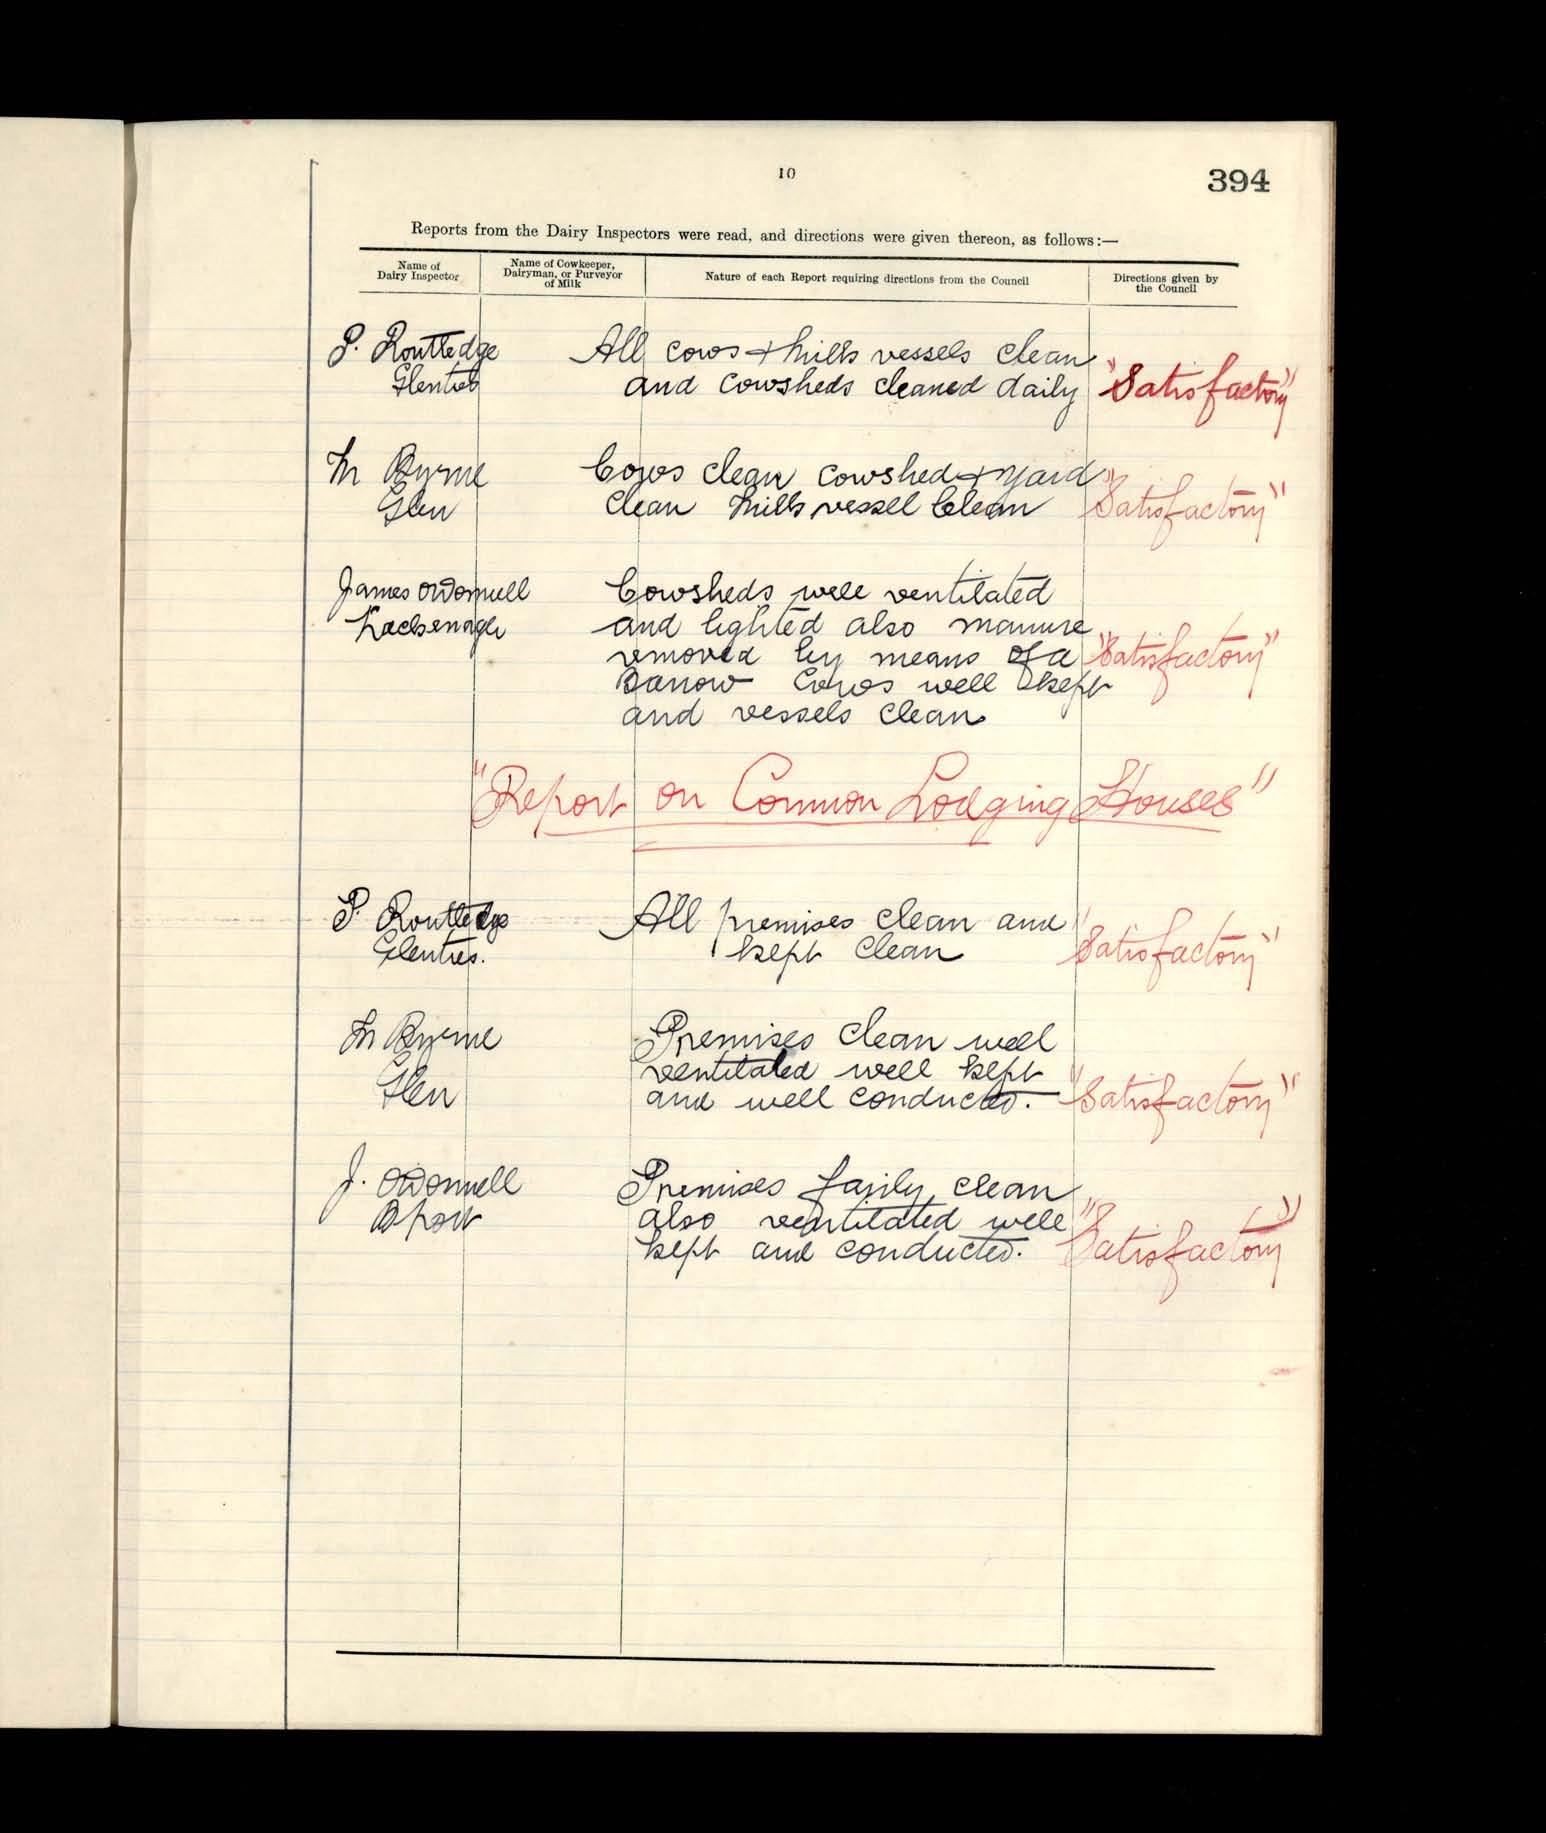 10
394
Reports from the Dairy Inspectors were read, and directions were given thereon, as follows:—
Name of Dairy Inspector
Name of Cowkeeper, Dairyman, or Purveyor of Milk
Nature of each Report requiring directions from the Council
Directions given by the Council
P. Routledge All cows + milk vessels clean
Glenties and cowsheds cleaned daily "Satisfactory"
M Byrne Cows clean cowshed + yard
Glen clean milk vessel Clean "Satisfactory"
James O'Donnell Cowsheds well ventilated
and lighted also manure
removed by means of a "Satisfactory"
Barrow Cows well kept
and vessels clean
"Report on Common Lodging Houses"
P. Routledge All premises clean and
Glenties. kept clean "Satisfactory"
M Byrne Premises clean well
ventilated well kept
Glen and well conducted. "Satisfactory"
J. O'Donnell Premises fairly clean
Bport also ventilated well
kept and conducted. "Satisfactory"